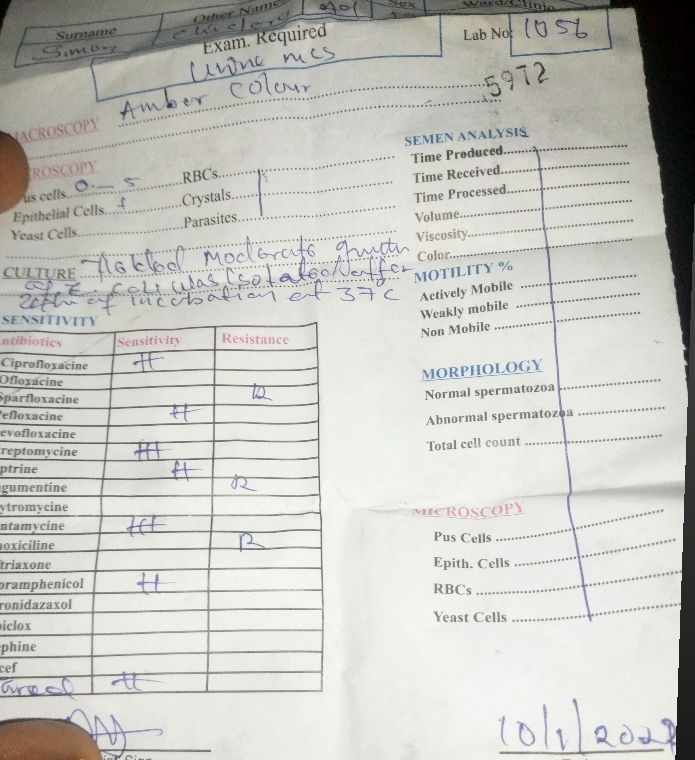 Surname
Other Name
Sex
Ward/Clinic
Simon
Exam. Required
Lab No: 1056
Urine mcs
5972
MACROSCOPY Amber Colour
ROSCOPY
us cells 0 — 5 RBCs
Epithelial Cells + Crystals
Yeast Cells Parasites
CULTURE Yielded Moderate growth
of E. coli was isolated after
of incubation at 37°C
SENSITIVITY
ntibiotics Sensitivity Resistance
Ciprofloxacine ++
Ofloxacine
Sparfloxacine R
efloxacine ++
evofloxacine
treptomycine +++
ptrine ++
gumentine R
ytromycine
ntamycine +++
oxiciline R
triaxone
oramphenicol ++
ronidazaxol
iclox
phine
cef
++
SEMEN ANALYSIS
Time Produced
Time Received
Time Processed
Volume
Viscosity
Color
MOTILITY %
Actively Mobile
Weakly mobile
Non Mobile
MORPHOLOGY
Normal spermatozoa
Abnormal spermatozoa
Total cell count
MICROSCOPY
Pus Cells
Epith. Cells
RBCs
Yeast Cells
10/1/2022